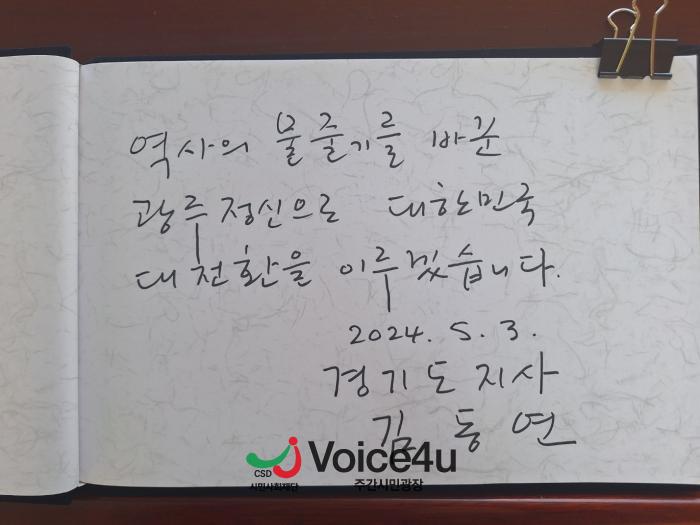 역사의 물줄기를 바꾼
광주정신으로 대한민국
대전환을 이루겠습니다.
2024. 5. 3.
경기도지사
김동연
CSD Voice4u
시민사회재단 주간시민광장